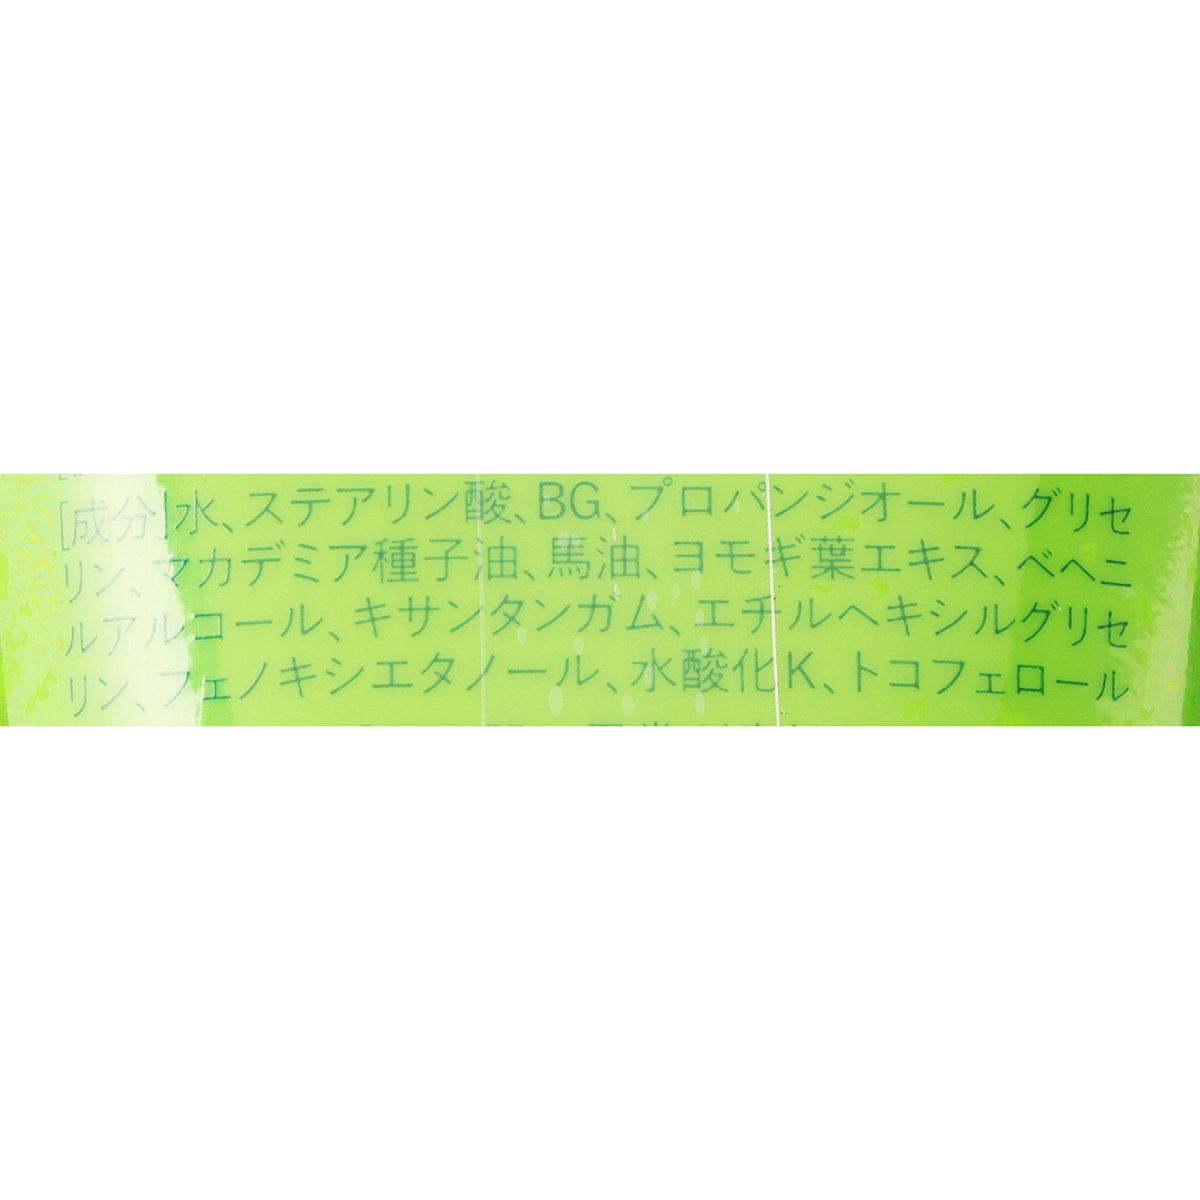 [成分]水、ステアリン酸、BG、プロパンジオール、グリセ
リン、マカデミア種子油、馬油、ヨモギ葉エキス、ベヘニ
ルアルコール、キサンタンガム、エチルヘキシルグリセ
リン、フェノキシエタノール、水酸化K、トコフェロール